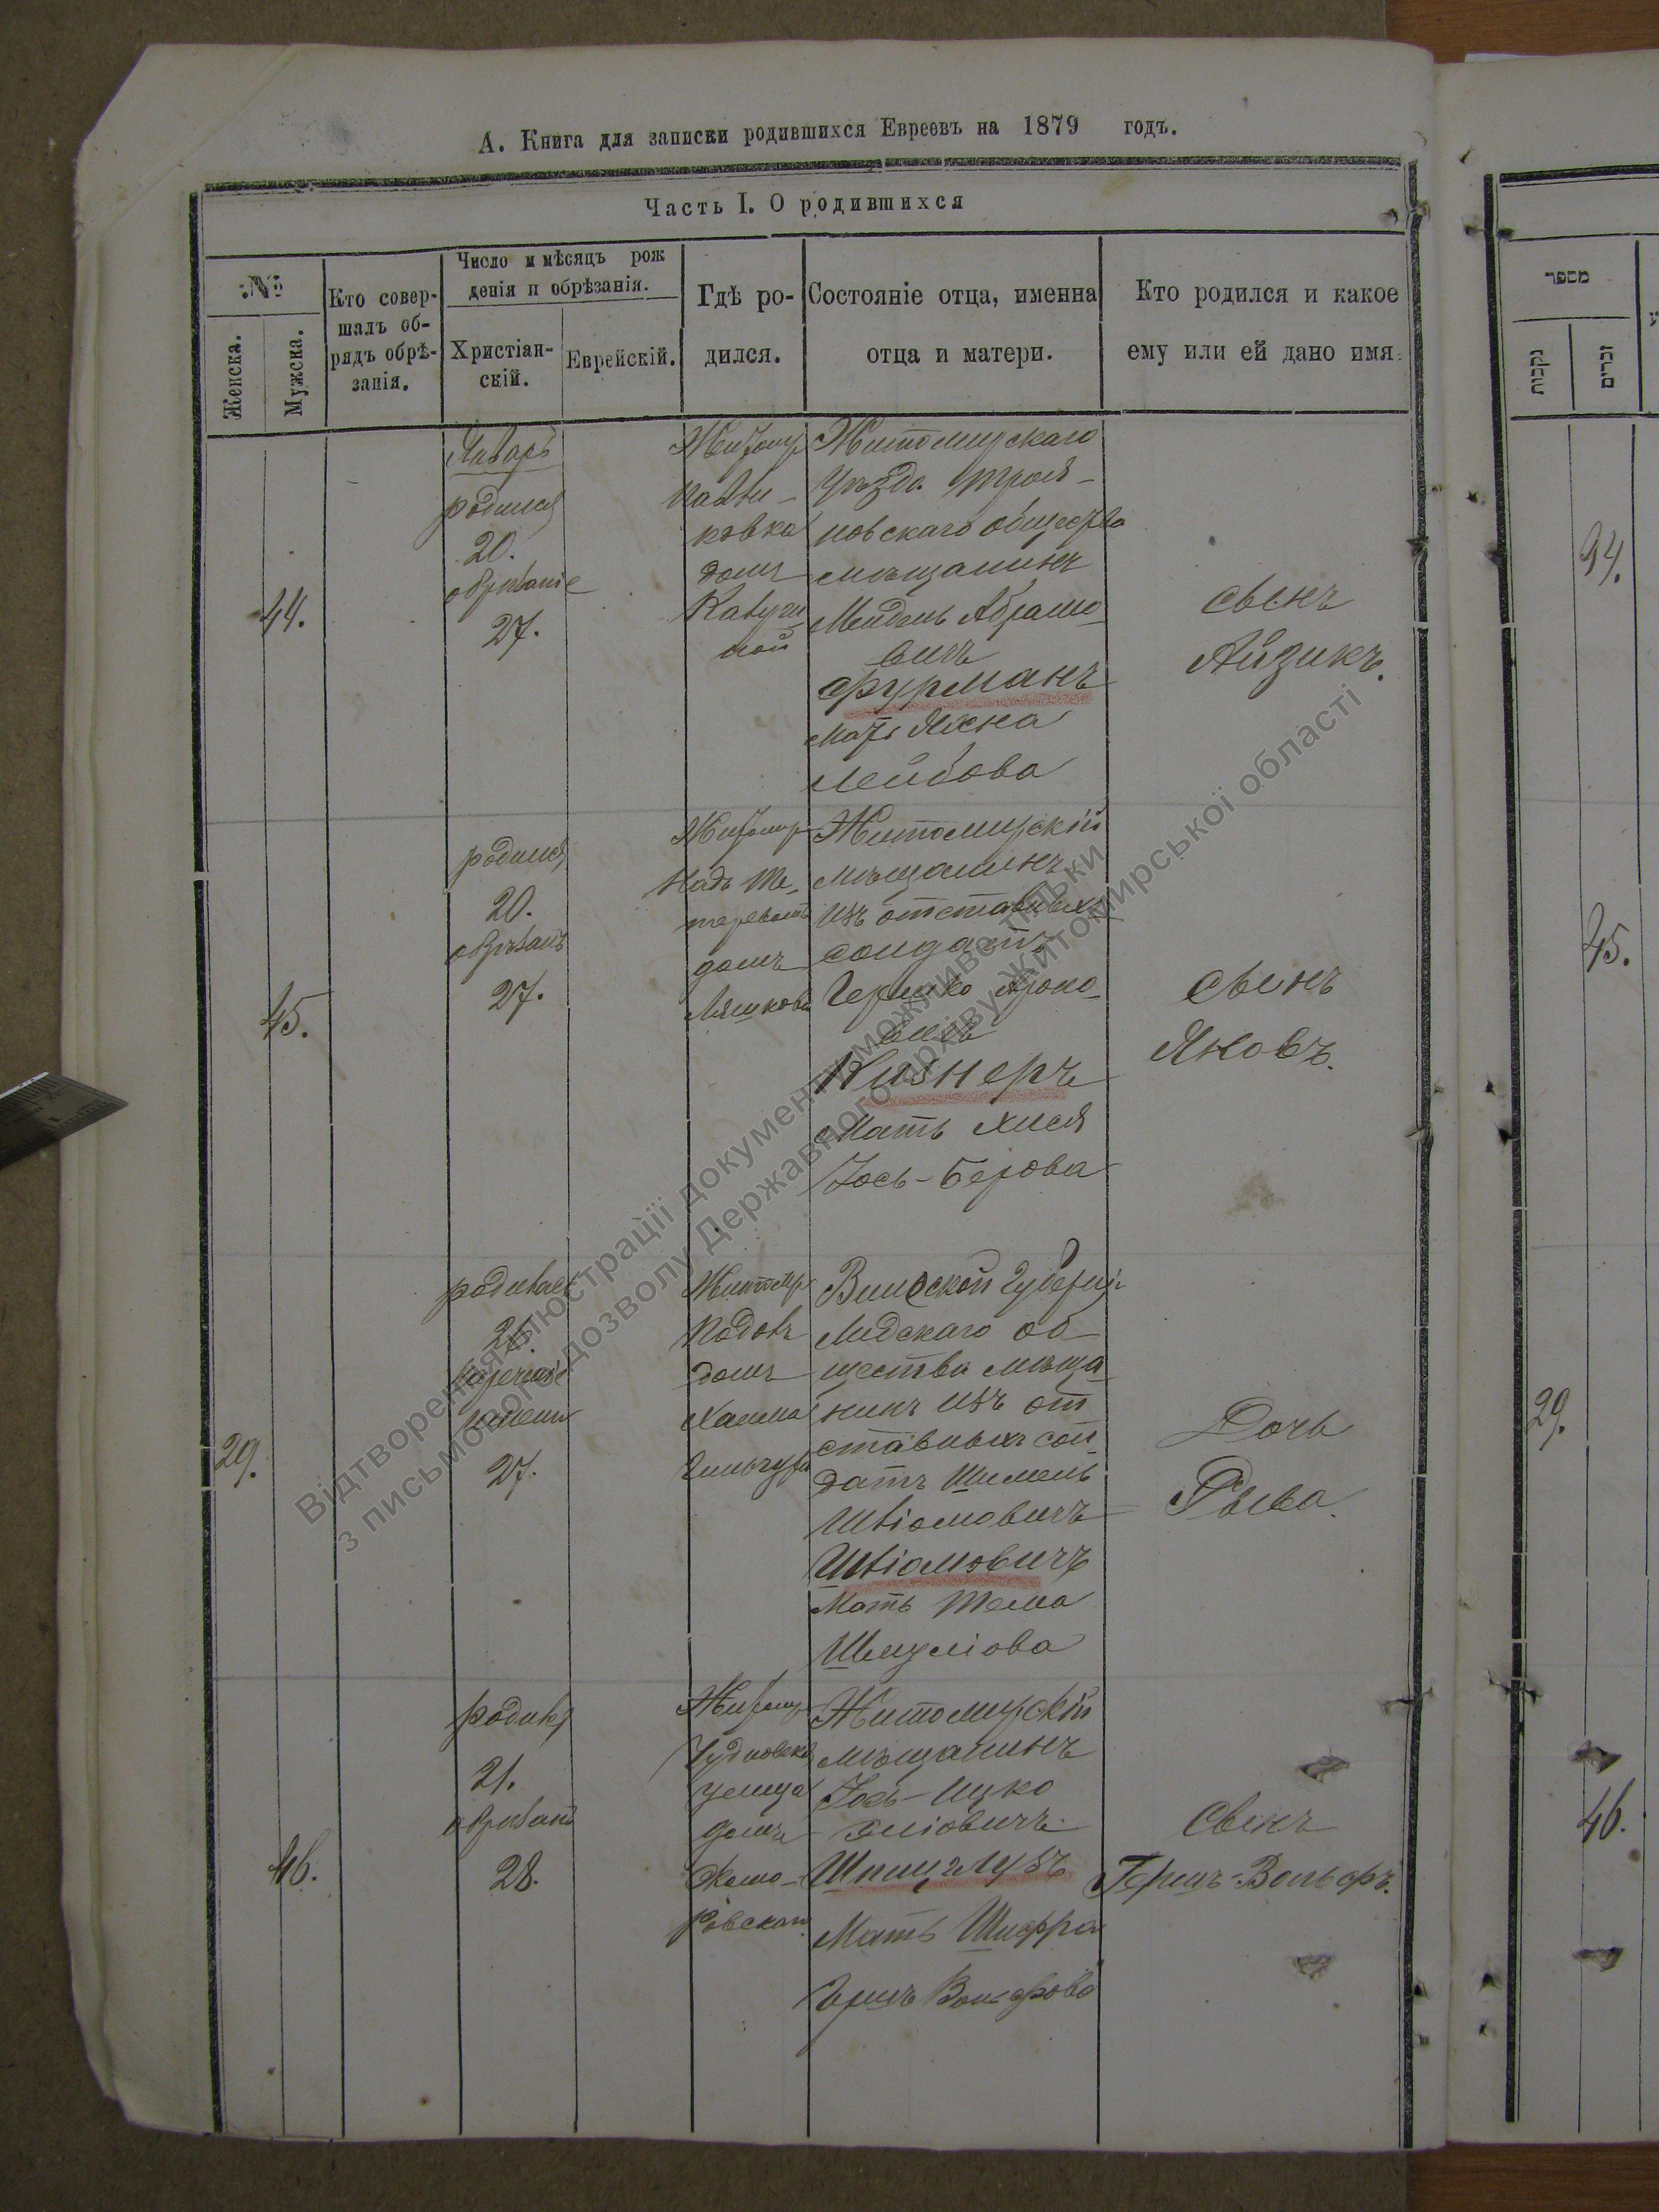 А. Книга для записки родившихся Евреевъ на 1879 годъ.
Часть I. О родившихся
№
Женска.
Мужска.
Кто совер-
шалъ об-
рядъ обрѣ-
занія.
Число и мѣсяцъ рож
денія и обрѣзанія.
Христіан-
скій.
Еврейскій.
Гдѣ ро-
дился.
Состояніе отца, именна
отца и матери.
Кто родился и какое
ему или ей дано имя.
44.
Январь
родился
20.
обрѣзаніе
27.
Житомир
ковка
домъ
Житомирскаго
Уѣзда Троя-
новскаго общества
мѣщанинъ
Мендель Абрамо-
вичъ
Фурманъ
Мать
Лейбова
сынъ
Айзикъ.
45.
родился
20.
обрѣзанъ
27.
Житомир
Надъ Те-
теревомъ
домъ
Ляшкова
Житомирскій
мѣщанинъ
изъ отставныхъ
солдатъ
Гершко Ароно-
вичъ
Кизнеръ
Мать Хися
Іось-Берова
сынъ
Яковъ.
29.
родилась
21.
нареченіе
имени
27.
Житомир
домъ
Хаима
Виленской Губерніи
Лидскаго об-
щества мѣща-
нинъ изъ от
ставныхъ сол-
датъ Шмель
Шліомовичъ
Шліомовичъ
Мать Тема
Шмуліова
Дочь
Рыва.
46.
родился
21.
обрѣзанъ
28.
Житомир
Чудновская
улица
домъ
Житомирскій
мѣщанинъ
Іось-Ицко
Эліовичъ
Шпицглузъ
Мать Шифра
Гершъ Вольфова
Сынъ
Гершъ-Вольфъ.
מספר
נקבות
זכרים
94.
45.
29.
46.
Відтворення ілюстрації документу можливе тільки
з письмового дозволу Державного архіву Житомирської області